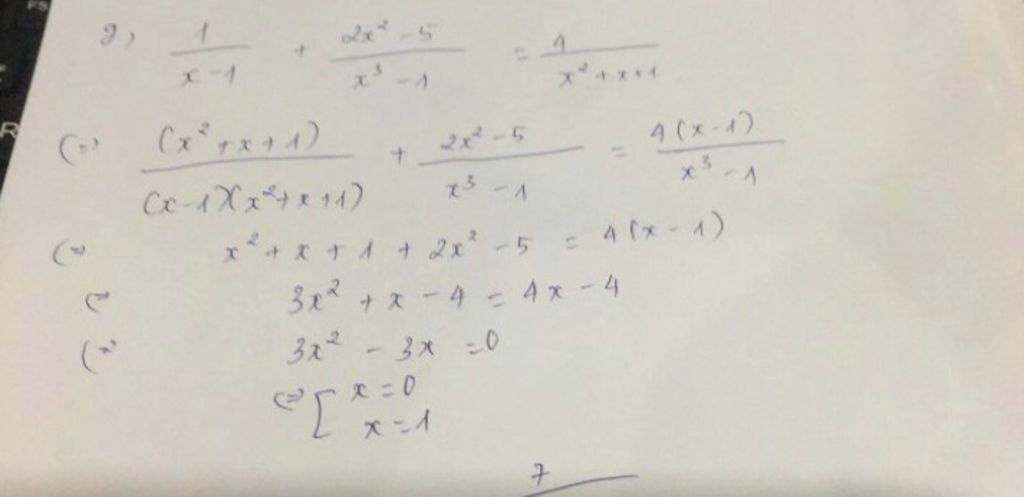 g) 1/(x-1) + (2x² - 5)/(x³ - 1) = 4/(x² + x + 1)
(=) (x² + x + 1)/((x-1)(x² + x + 1)) + (2x² - 5)/(x³ - 1) = 4(x-1)/(x³ - 1)
(=) x² + x + 1 + 2x² - 5 = 4(x - 1)
(=) 3x² + x - 4 = 4x - 4
(=) 3x² - 3x = 0
(=) [ x = 0
x = 1
7